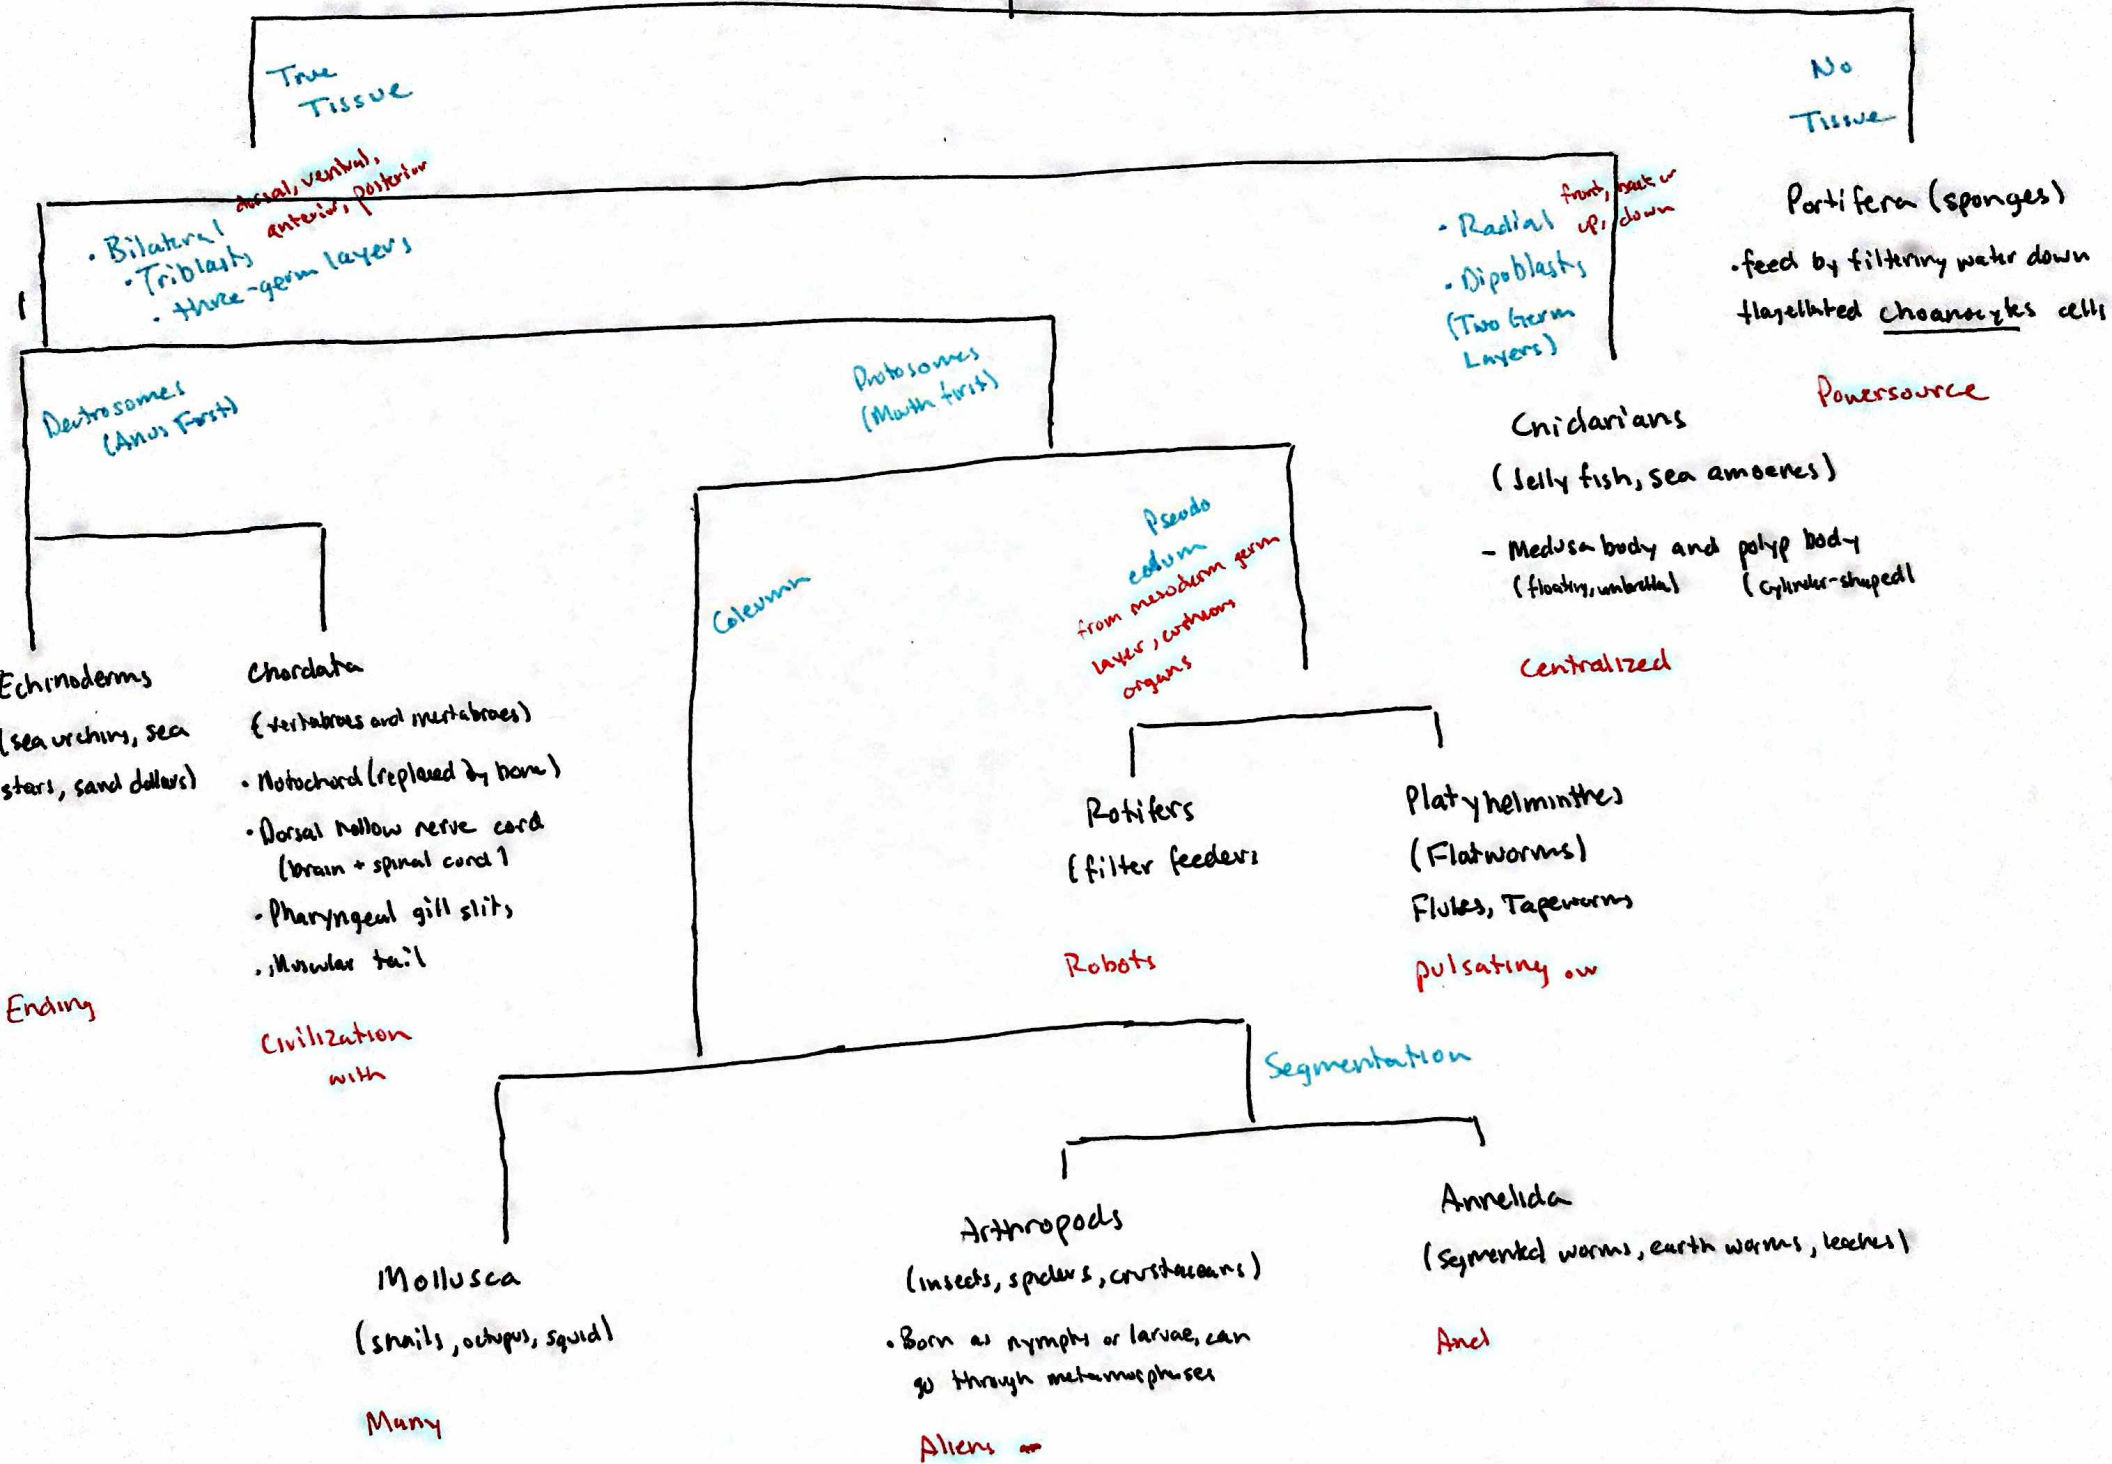 True
Tissue
No
Tissue
dorsal, ventral,
anterior, posterior
• Bilateral
• Triblasts
• three-germ layers
• Radial
front, back or
up, down
• Dipoblasts
(Two Germ
Layers)
Portifera (sponges)
• feed by filtering water down
flagellated choanocytes cells
Powersource
Deutrosomes
(Anus First)
Protosomes
(Mouth first)
Cnidarians
(Jelly fish, sea amoenes)
- Medusa body and polyp body
(floating, umbrella) (cylinder-shaped)
Centralized
Coleumn
Pseudo
colum
from mesoderm germ
layer, cushions
organs
Echinoderms
(sea urchins, sea
stars, sand dollars)
Ending
Chordata
(vertabraes and invertabraes)
• Notochord (replaced by bone)
• Dorsal hollow nerve cord
(brain + spinal cord)
• Pharyngeal gill slits
• Muscular tail
Civilization
with
Rotifers
(filter feeders
Robots
Platyhelminthes
(Flatworms)
Flukes, Tapeworms
pulsating
Segmentation
Mollusca
(snails, octupus, squid)
Many
Arthropods
(insects, spiders, crustaceans)
• Born as nymphs or larvae, can
go through metamorphoses
Aliens
Annelida
(segmented worms, earth worms, leaches)
And